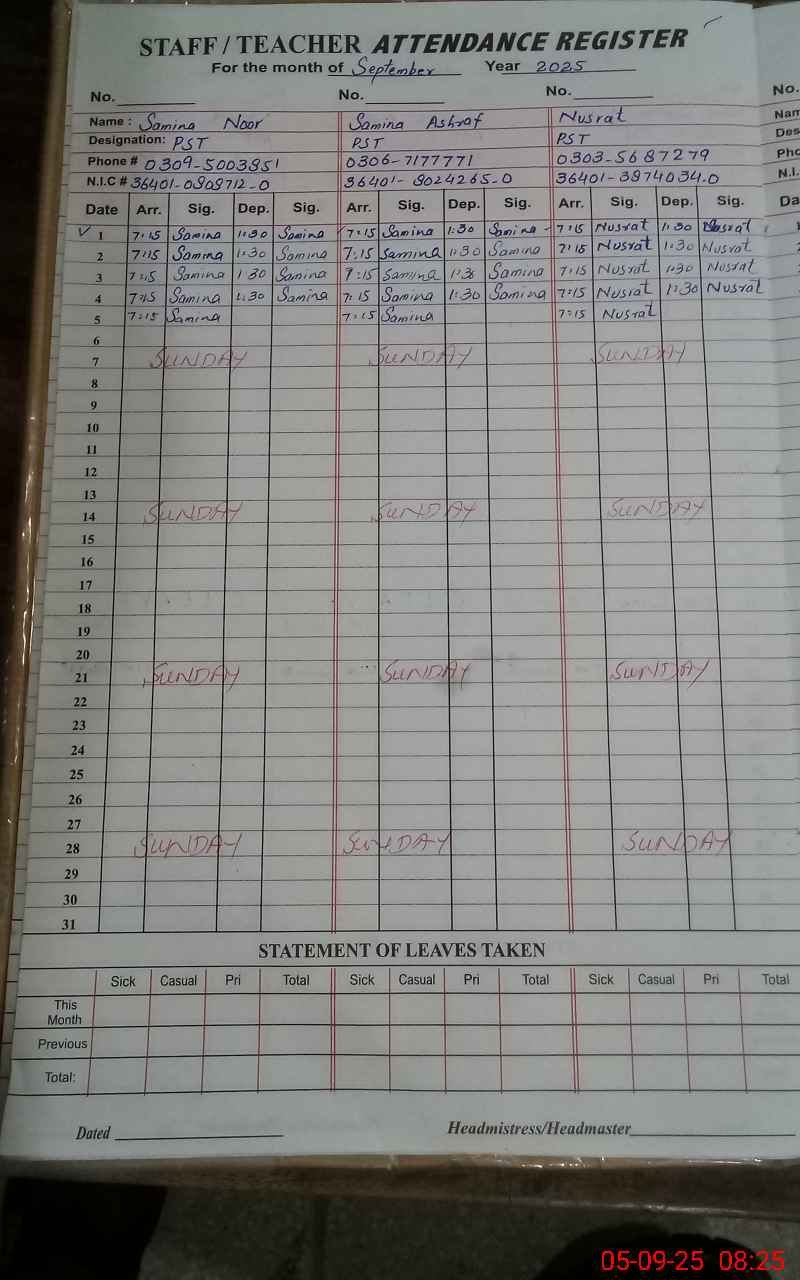 STAFF / TEACHER ATTENDANCE REGISTER
For the month of September Year 2025
No. No. No. No.
Name : Samina Noor Samina Ashraf Nusrat Nam
Designation: PST PST PST Des
Phone # 0309-5003851 0306-7177771 0303-5687279 Pho
N.I.C # 36401-0909712-0 36401-8024265-0 36401-3974034-0 N.I.
Date Arr. Sig. Dep. Sig. Arr. Sig. Dep. Sig. Arr. Sig. Dep. Sig. Da
1 7:15 Samina 1:30 Samina 7:15 Samina 1:30 Samina 7:15 Nusrat 1:30 Nusrat
2 7:15 Samina 1:30 Samina 7:15 Samina 1:30 Samina 7:15 Nusrat 1:30 Nusrat
3 7:15 Samina 1:30 Samina 7:15 Samina 1:3 Samina 7:15 Nusrat 1:30 Nusrat
4 7:15 Samina 1:30 Samina 7:15 Samina 1:30 Samina 7:15 Nusrat 1:30 Nusrat
5 7:15 Samina 7:15 Samina 7:15 Nusrat
6
7 SUNDAY SUNDAY SUNDAY
8
9
10
11
12
13
14 SUNDAY SUNDAY SUNDAY
15
16
17
18
19
20
21 SUNDAY SUNDAY SUNDAY
22
23
24
25
26
27
28 SUNDAY SUNDAY SUNDAY
29
30
31
STATEMENT OF LEAVES TAKEN
Sick Casual Pri Total Sick Casual Pri Total Sick Casual Pri Total
This
Month
Previous
Total:
Dated Headmistress/Headmaster
05-09-25 08:25